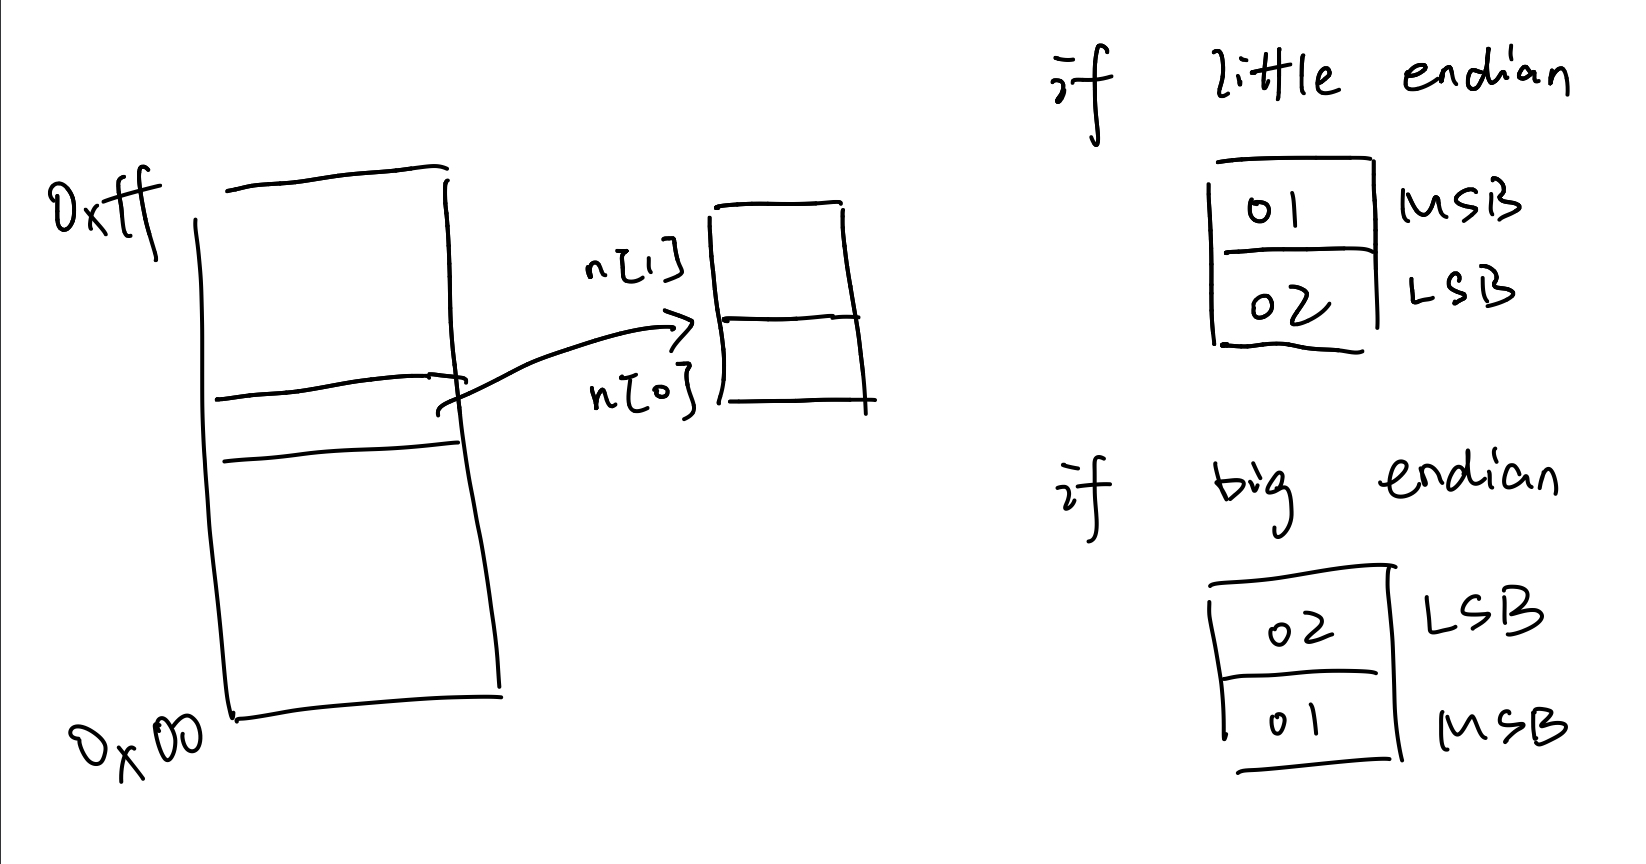 0xff
n[1]
n[0]
0x00
if little endian
01 MSB
02 LSB
if big endian
02 LSB
01 MSB